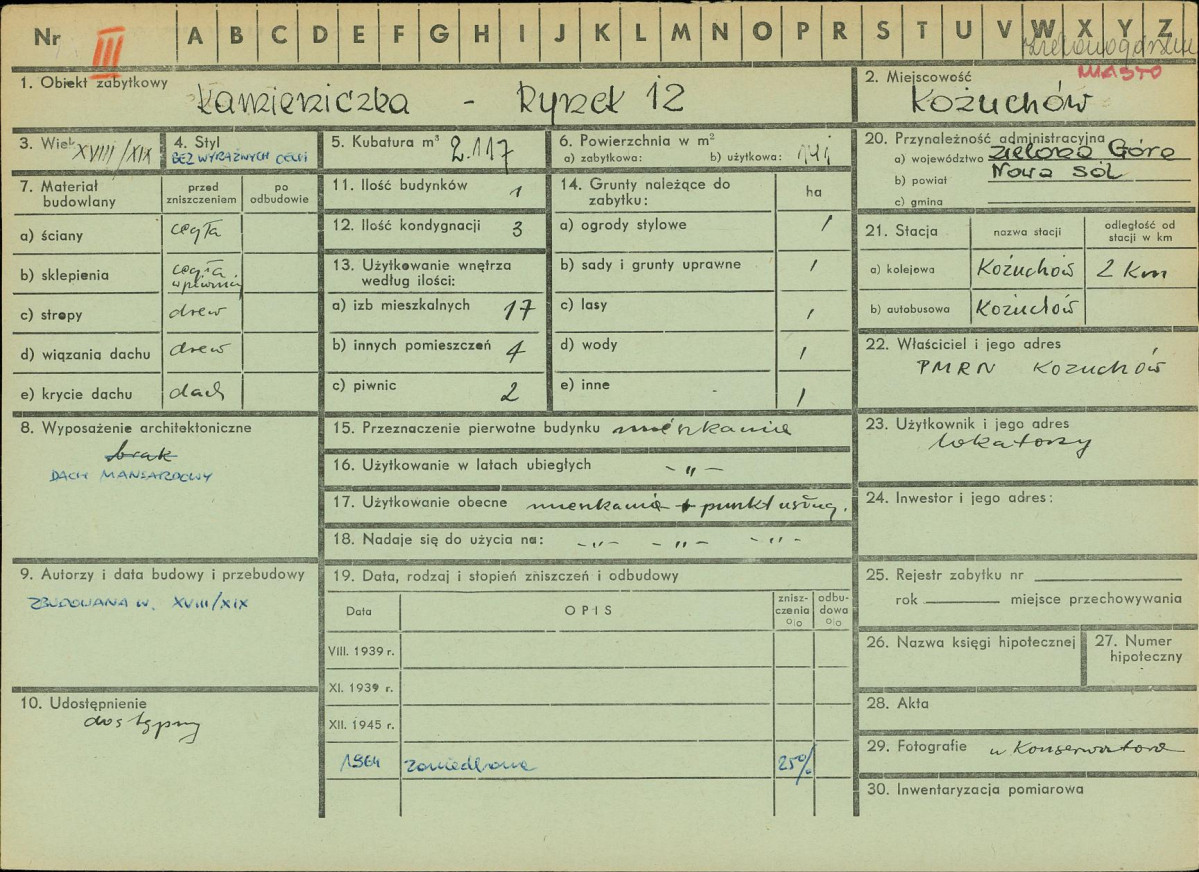 Nr III A B C D E F G H I J K L M N O P R S T U V W X Y Z
MIASTO
1. Obiekt zabytkowy
Kamieniczka - Rynek 12
2. Miejscowość
Kożuchów
3. Wiek XVIII/XIX
4. Styl
BEZ WYRAŹNYCH CECH
5. Kubatura m³ 2.117
6. Powierzchnia w m²
a) zabytkowa: b) użytkowa:
20. Przynależność administracyjna
a) województwo Zielona Góra
b) powiat Nowa Sól
c) gmina
7. Materiał budowlany
przed zniszczeniem
po odbudowie
a) ściany cegła
b) sklepienia cegła w piwnicy
c) stropy drew
d) wiązania dachu drew
e) krycie dachu dach
11. Ilość budynków 1
12. Ilość kondygnacji 3
13. Użytkowanie wnętrza według ilości:
a) izb mieszkalnych 17
b) innych pomieszczeń 4
c) piwnic 2
14. Grunty należące do zabytku:
ha
a) ogrody stylowe /
b) sady i grunty uprawne /
c) lasy /
d) wody /
e) inne /
21. Stacja
nazwa stacji
odległość od stacji w km
a) kolejowa Kożuchów 2 Km
b) autobusowa Kożuchów
22. Właściciel i jego adres
PMRN Kożuchów
8. Wyposażenie architektoniczne
brak
DACH MANSARDOWY
15. Przeznaczenie pierwotne budynku mieszkania
16. Użytkowanie w latach ubiegłych - " -
17. Użytkowanie obecne mieszkania + punkt usług.
18. Nadaje się do użycia na: - " - - " - - " -
23. Użytkownik i jego adres
lokatorzy
24. Inwestor i jego adres:
9. Autorzy i data budowy i przebudowy
ZBUDOWANA W. XVIII/XIX
19. Data, rodzaj i stopień zniszczeń i odbudowy
Data
OPIS
zniszczenia %
odbudowa %
VIII. 1939 r.
XI. 1939 r.
XII. 1945 r.
1964 zaniedbana 25%
25. Rejestr zabytku nr
rok miejsce przechowywania
26. Nazwa księgi hipotecznej
27. Numer hipoteczny
10. Udostępnienie
dostępny
28. Akta
29. Fotografie u Konserwatora
30. Inwentaryzacja pomiarowa